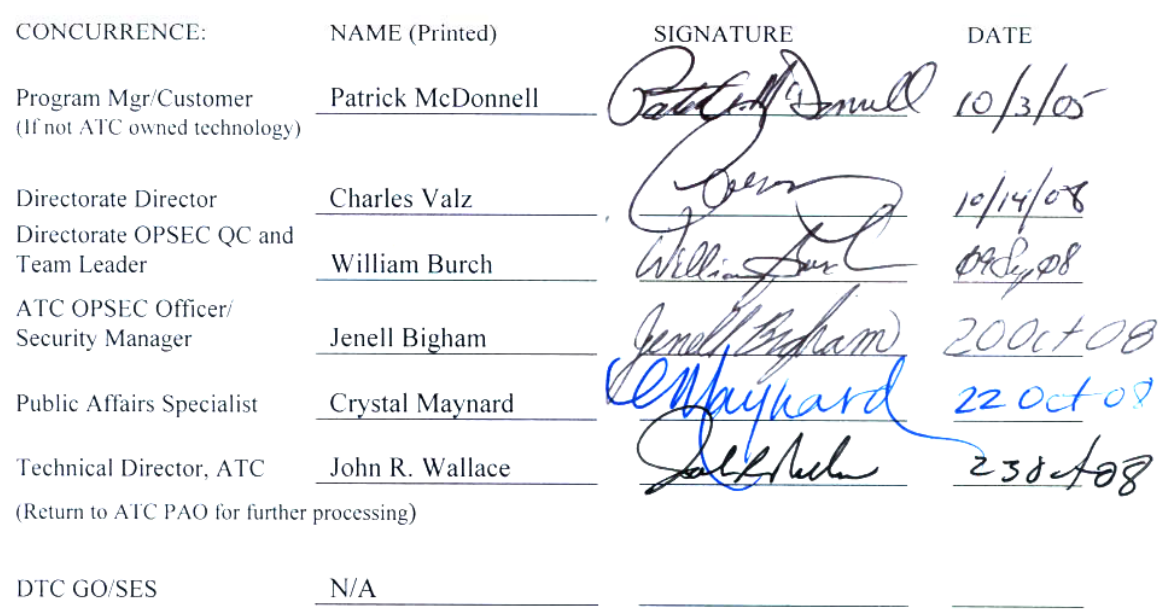 CONCURRENCE: NAME (Printed) SIGNATURE DATE
Program Mgr/Customer Patrick McDonnell Patrick McDonnell 10/3/05
(If not ATC owned technology)
Directorate Director Charles Valz 10/14/08
Directorate OPSEC QC and
Team Leader William Burch William Burch 09Sep08
ATC OPSEC Officer/
Security Manager Jenell Bigham Jenell Bigham 20Oct08
Public Affairs Specialist Crystal Maynard CMaynard 22Oct08
Technical Director, ATC John R. Wallace 23Oct08
(Return to ATC PAO for further processing)
DTC GO/SES N/A